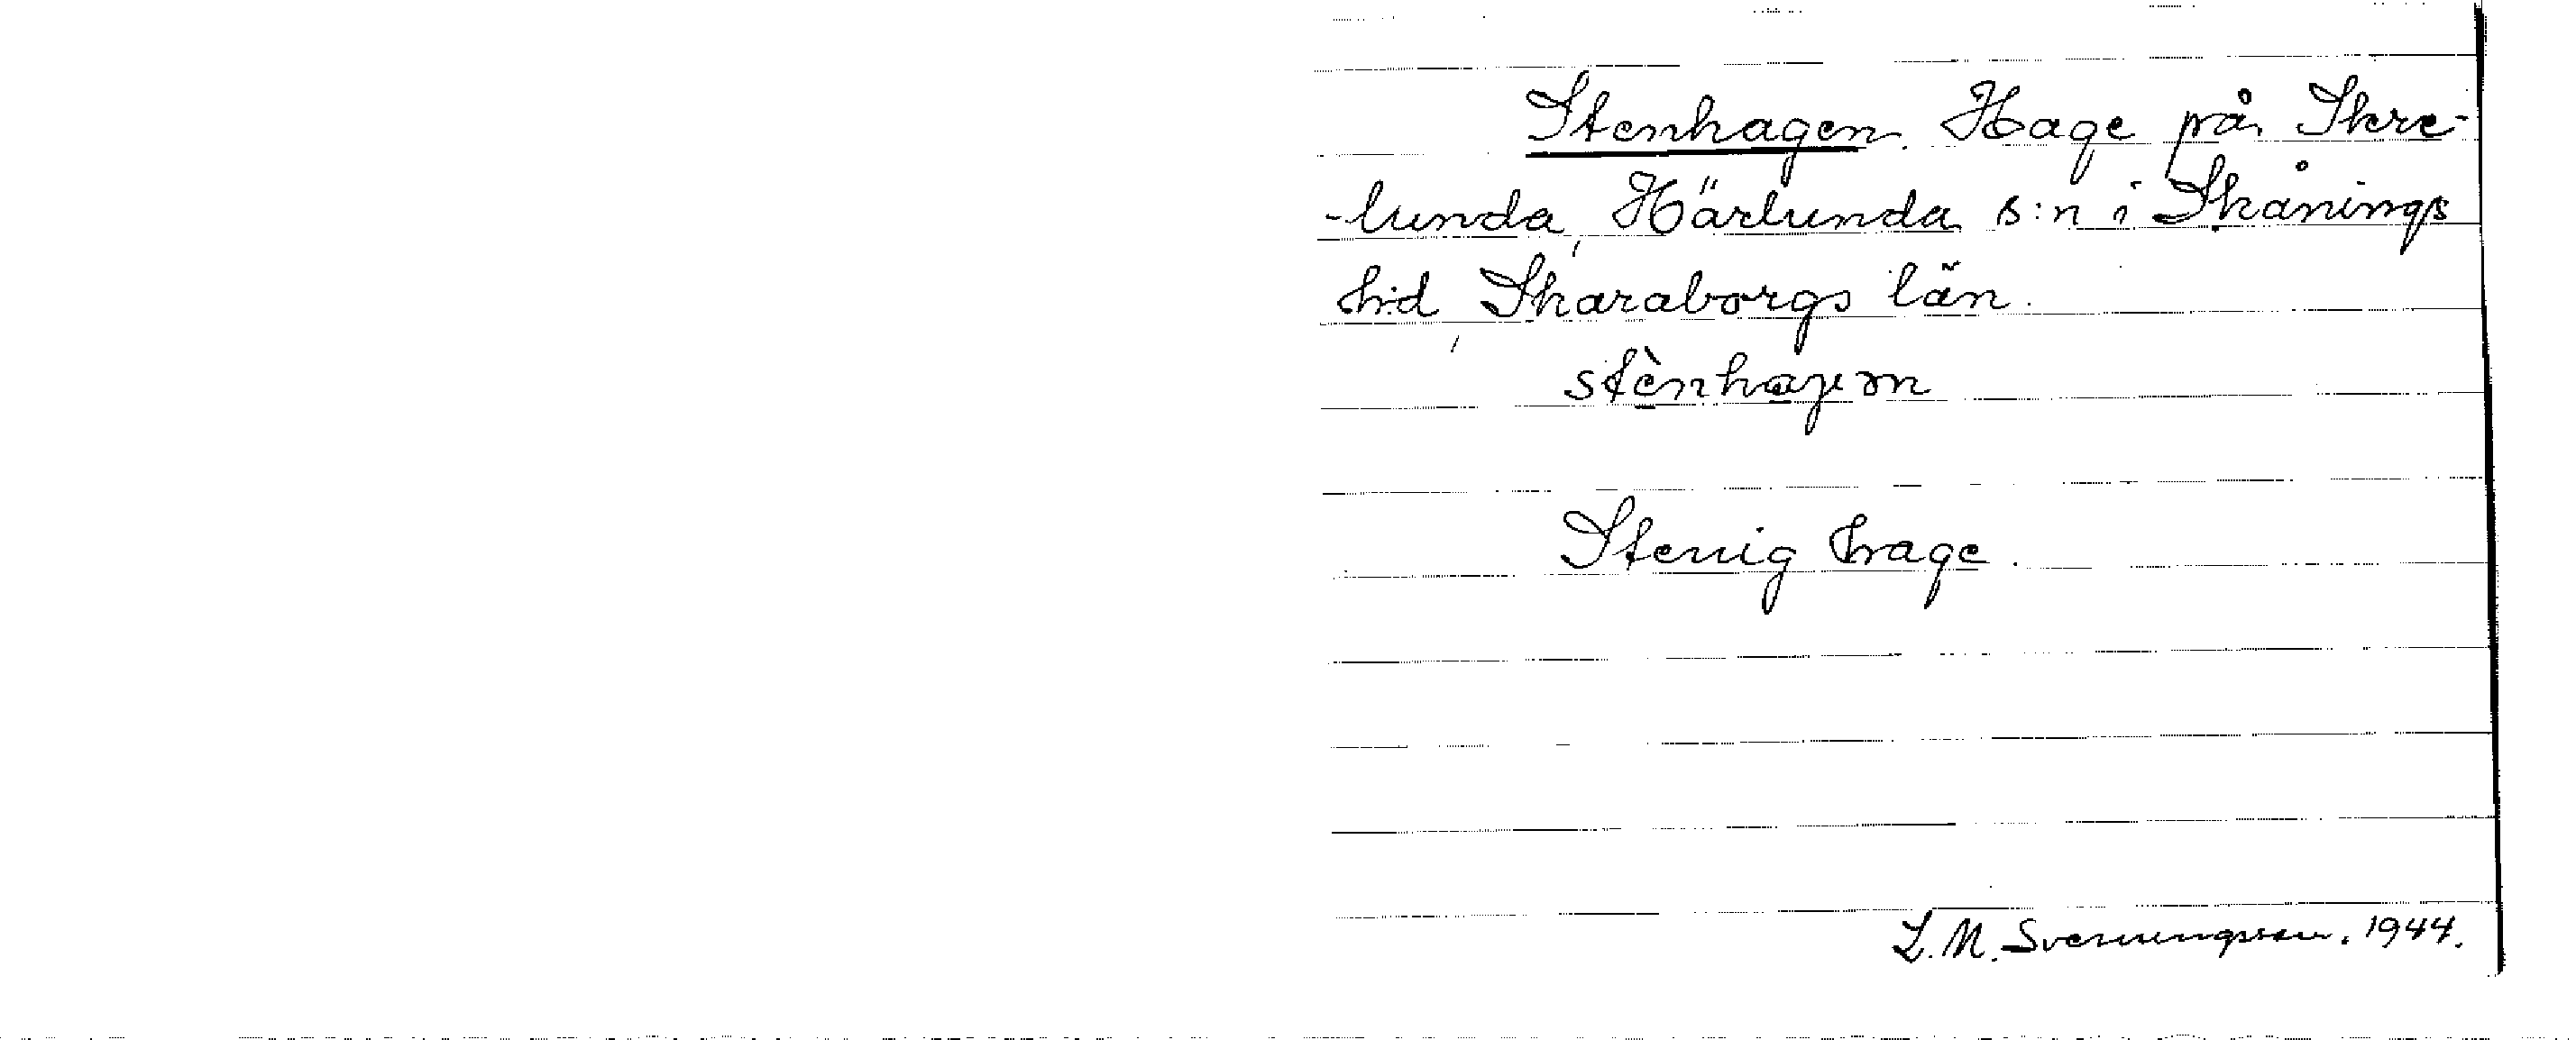 Stenhagen. Hage på Skre-
-lunda, Härlunda s:n i Skånings
h:d, Skaraborgs län.
stènhagen
Stenig hage.
L. M. Svenningsson. 1944.